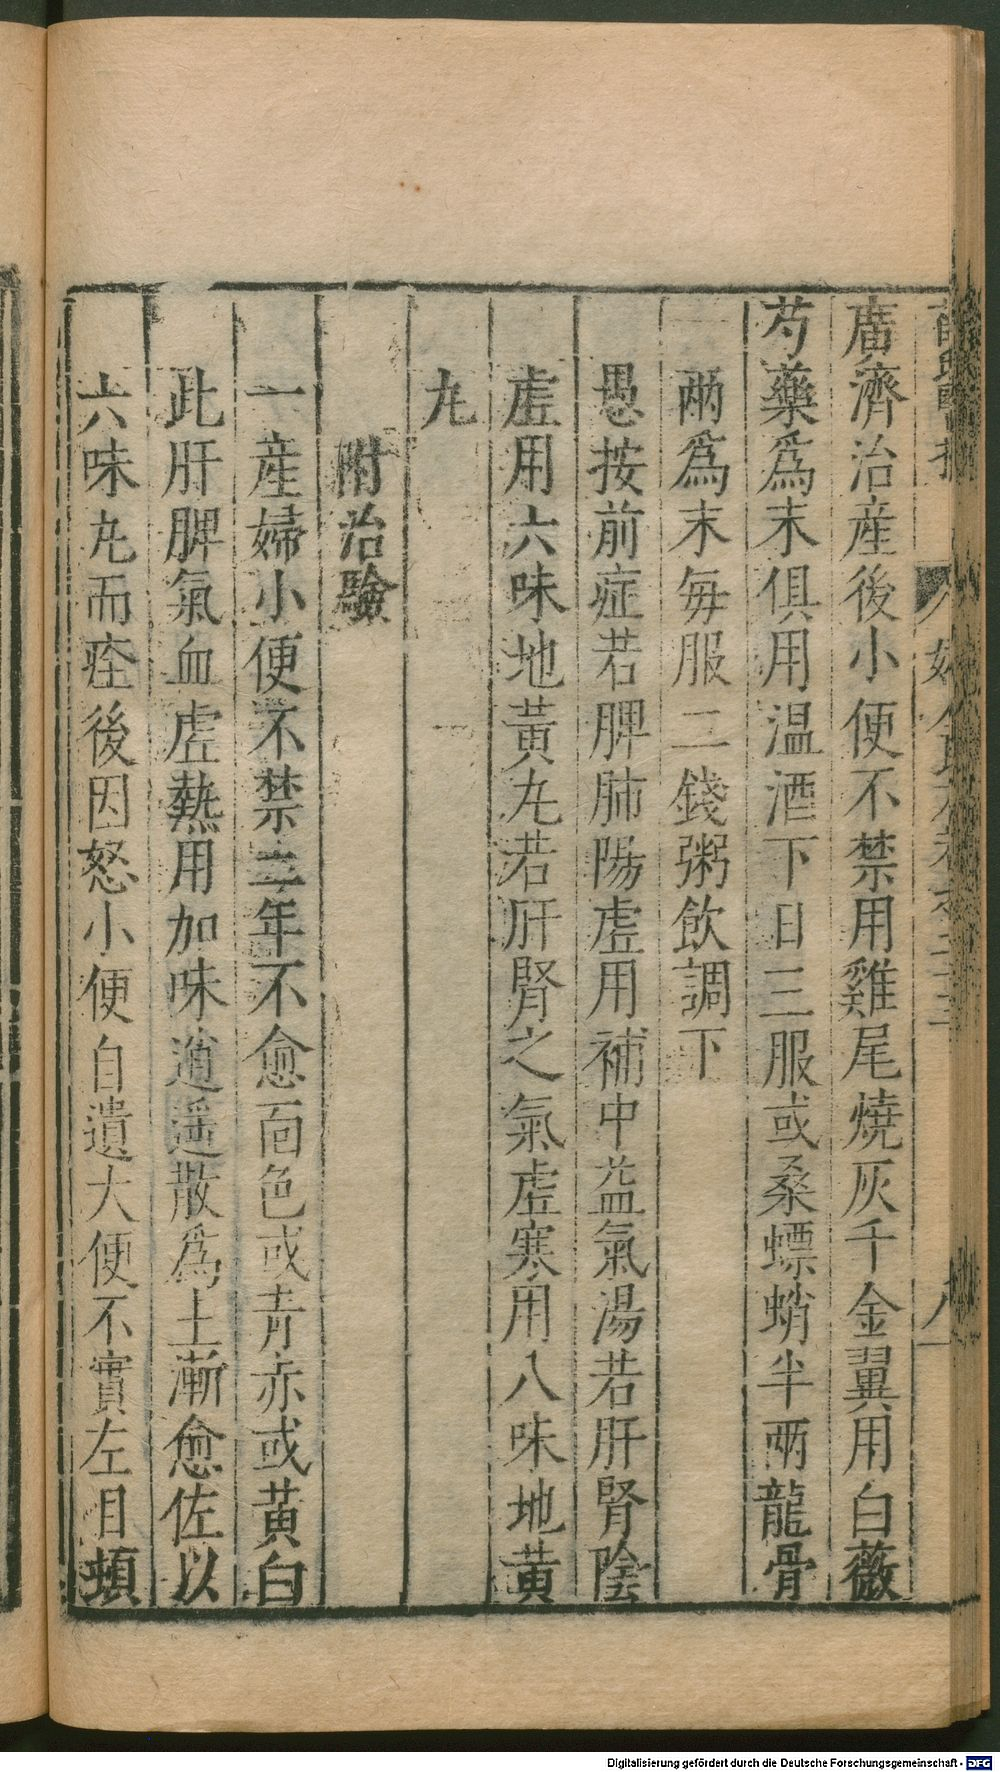 廣濟治産後小便不禁用雞尾燒灰千金翼用白薇
芍藥爲末俱用温酒下日三服或桑螵蛸半兩龍骨
一兩爲末每服二錢粥飲調下
愚按前症若脾肺陽虛用補中益氣湯若肝腎陰
虛用六味地黃丸若肝腎之氣虛寒用八味地黃
丸
附治驗
一産婦小便不禁二年不愈面色或青赤或黃白
此肝脾氣血虛熱用加味逍遥散爲主漸愈佐以
六味丸而痊後因怒小便自遺大便不實左目頓
Digitalisierung gefördert durch die Deutsche Forschungsgemeinschaft - DFG